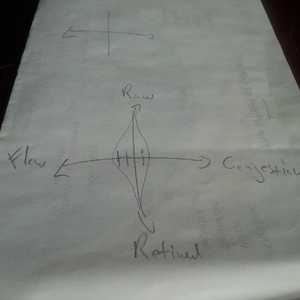 Raw
Flow Congestion
Refined